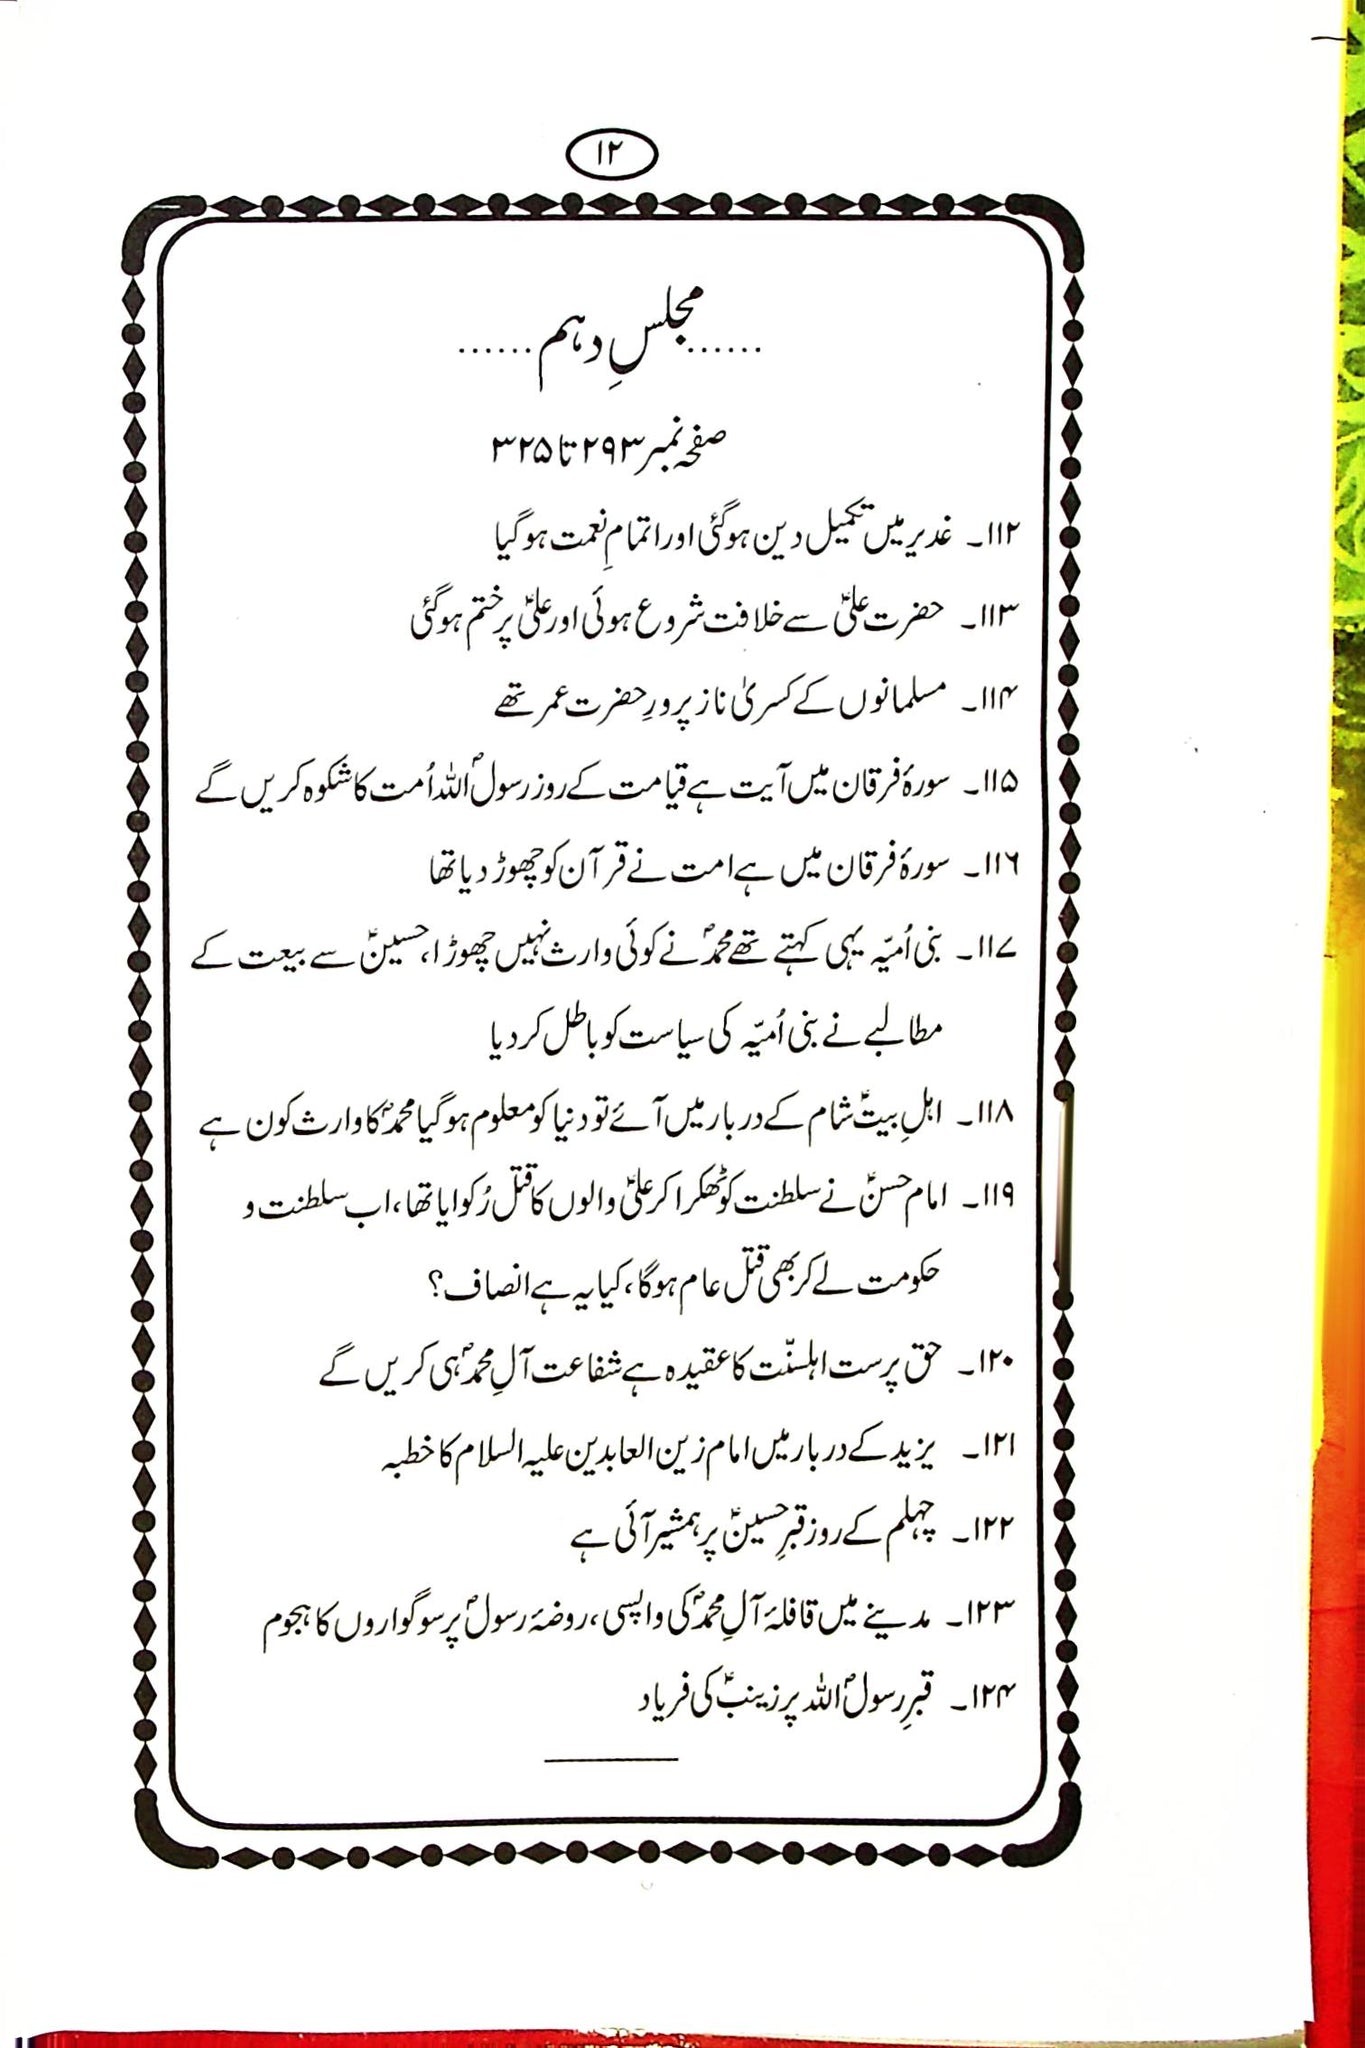 ۱۲
......مجلسِ دہم......
صفحہ نمبر ۲۹۳ تا ۳۲۵
۱۱۲۔ غدیر میں تکمیل دین ہوگئی اور اتمامِ نعمت ہوگیا
۱۱۳۔ حضرت علیؑ سے خلافت شروع ہوئی اور علیؑ پر ختم ہوگئی
۱۱۴۔ مسلمانوں کے کسریٰ ناز پرورِ حضرت عمر تھے
۱۱۵۔ سورۂ فرقان میں آیت ہے قیامت کے روز رسولؐ اللہ اُمت کا شکوہ کریں گے
۱۱۶۔ سورۂ فرقان میں ہے امت نے قرآن کو چھوڑ دیا تھا
۱۱۷۔ بنی اُمیّہ یہی کہتے تھے محمدؐ نے کوئی وارث نہیں چھوڑا، حسینؑ سے بیعت کے
مطالبے نے بنی اُمیّہ کی سیاست کو باطل کردیا
۱۱۸۔ اہلِ بیتؑ شام کے دربار میں آئے تو دنیا کو معلوم ہوگیا محمدؐ کا وارث کون ہے
۱۱۹۔ امام حسنؑ نے سلطنت کو ٹھکرا کر علیؑ والوں کا قتل رُکوایا تھا، اب سلطنت و
حکومت لے کر بھی قتل عام ہوگا، کیا یہ ہے انصاف؟
۱۲۰۔ حق پرست اہلسنّت کا عقیدہ ہے شفاعت آلِ محمدؐ ہی کریں گے
۱۲۱۔ یزید کے دربار میں امام زین العابدین علیہ السلام کا خطبہ
۱۲۲۔ چہلم کے روز قبرِ حسینؑ پر ہمشیر آئی ہے
۱۲۳۔ مدینے میں قافلۂ آلِ محمدؐ کی واپسی، روضۂ رسولؐ پر سوگواروں کا ہجوم
۱۲۴۔ قبرِ رسولؐ اللہ پر زینبؑ کی فریاد